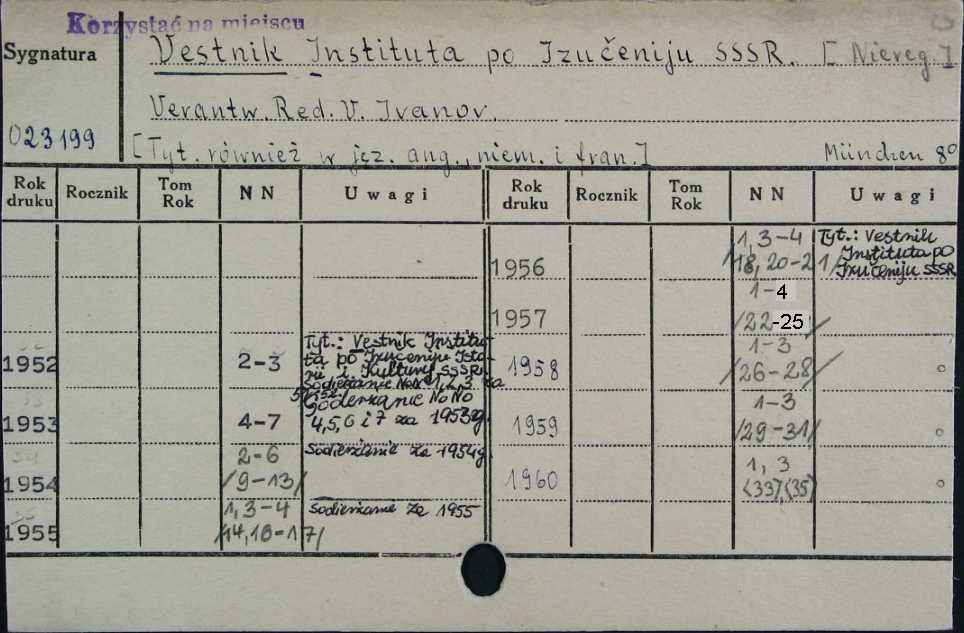 Korzystać na miejscu
Sygnatura
Vestnik Instituta po Izučeniju SSSR. [Niereg.]
Verantw. Red. V. Ivanov.
023199
[Tyt. również w jęz. ang., niem. i fran.] München 8°
Rok druku Rocznik Tom Rok NN Uwagi Rok druku Rocznik Tom Rok NN Uwagi
1956 1, 3-4 /18, 20-21/ Tyt.: Vestnik Instituta po Izučeniju SSSR
1957 1-4 /22-25/
1952 2-3 Tyt.: Vestnik Instituta po Izučeniju Isto- i Kultury SSSR
Soderžanie NoNo 1, 2, 3 za
1958 1-3 /26-28/
1953 4-7 Soderžanie NoNo 4, 5, 6 i 7 za 1953g.
1959 1-3 /29-31/
1954 2-6 /9-13/ Soderžanie za 1954g.
1960 1, 3 (33), (35)
1955 1, 3-4 /14, 16-17/ Soderžanie za 1955